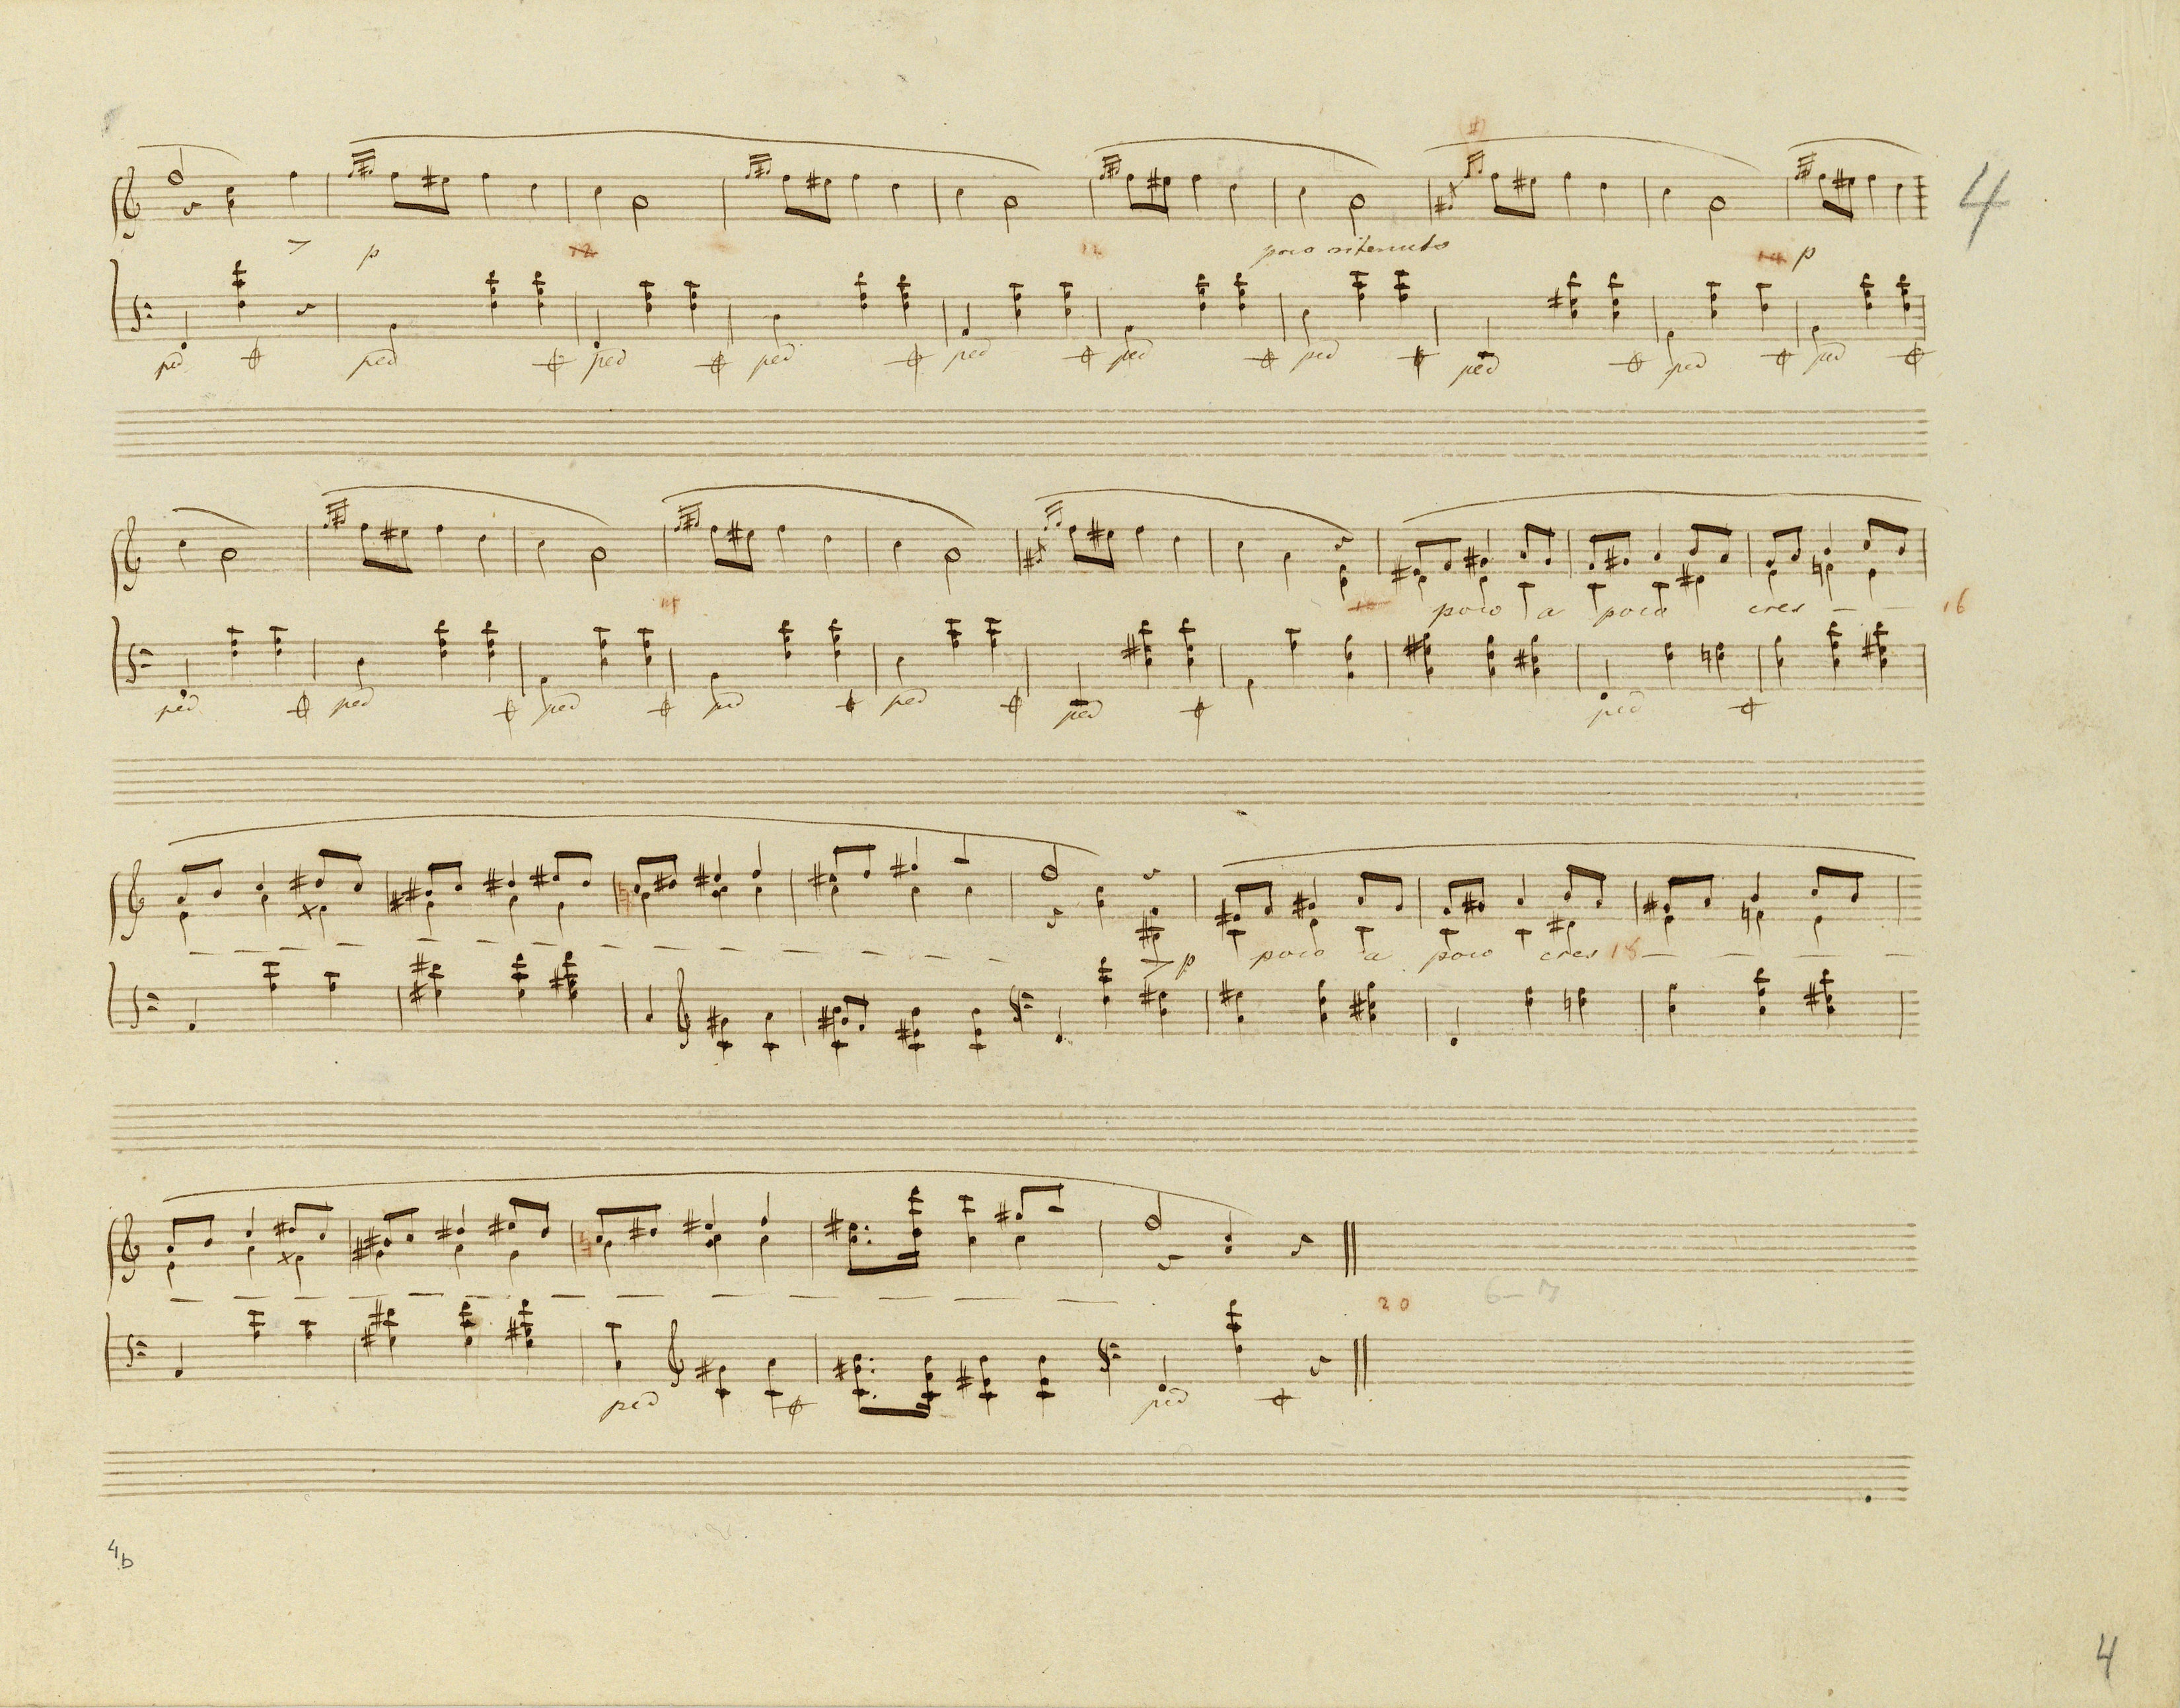 4
p 12 12 poco ritenuto 14 p
ped ped ped ped ped ped ped ped ped ped
14 poco a poco cres 16
ped ped ped ped ped ped ped
p poco a poco cres 18
20 6-7
ped ped
4b
4